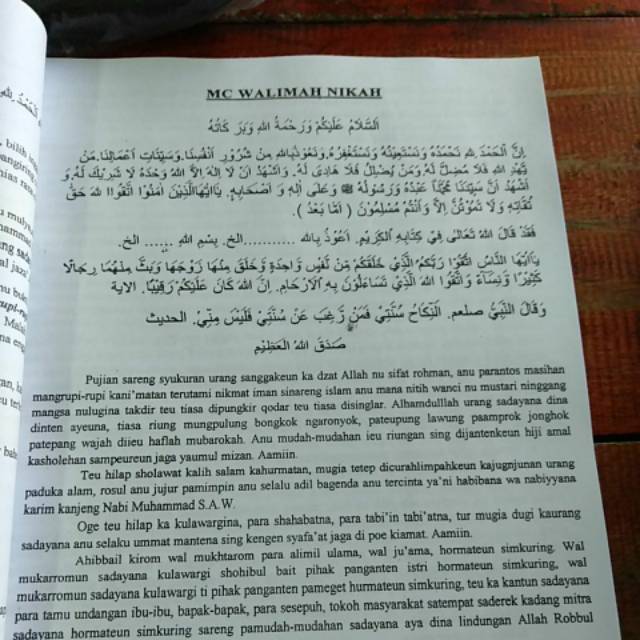 MC WALIMAH NIKAH
اَلسَّلَامُ عَلَيْكُمْ وَرَحْمَةُ اللهِ وَبَرَ كَاتُهُ
إِنَّ اَلْحَمْدَ لِلهِ نَحْمَدُهُ وَنَسْتَعِيْنُهُ وَنَسْتَغْفِرُهُ. وَنَعُوْذُبِاللهِ مِنْ شُرُوْرِ اَنْفُسِنَا. وَسَيِّئَاتِ اَعْمَالِنَا. مَنْ
يَّهْدِ اللهِ فَلَا مُضِلَّ لَهُ. وَمَنْ يُضْلِلْ فَلَا هَادِىَ لَهُ. وَاَشْهَدُ اَنْ لَا اِلٰهَ اِلَّا اللهُ وَحْدَهُ لَا شَرِيْكَ لَهُ. وَ
اَشْهَدُ اَنَّ سَيِّدَنَا مُحَمَّدًا عَبْدُهُ وَرَسُوْلُهُ ﷺ وَعَلَى اَلِهِ وَ اَصْحَابِهِ. يَااَيُّهَاالَّذِيْنَ اَمَنُوْا اتَّقُوْا اللهَ حَقَّ
تُقَاتِهِ وَلَا تَمُوْتُنَّ اِلَّا وَاَنْتُمْ مُسْلِمُوْنَ ( اَمَّا بَعْدُ ).
فَقَدْ قَالَ اللهُ تَعَالَى فِيْ كِتَابِهِ اَلْكَرِيْمِ. اَعُوْذُ بِاللهِ ...........الخ. بِسْمِ اللهِ ....... الخ.
يَااَيُّهَا النَّاسُ اتَّقُوْا رَبَّكُمُ الَّذِيْ خَلَقَكُمْ مِّنْ نَّفْسٍ وَاحِدَةٍ وَخَلَقَ مِنْهَا زَوْجَهَا وَبَثَّ مِنْهُمَا رِجَالًا
كَثِيْرًا وَنِسَآءً وَاتَّقُوْا اللهَ الَّذِيْ تَسَاءَلُوْنَ بِهِ الْاَرْحَامِ. اِنَّ اللهَ كَانَ عَلَيْكُمْ رَقِيْبًا. الاية
وَقَالَ النَّبِيُّ صلعم. اَلنِّكَاحُ سُنَّتِيْ فَمَنْ رَّغِبَ عَنْ سُنَّتِيْ فَلَيْسَ مِنِّيْ. الحديث
صَدَقَ اللهُ الْعَظِيْمِ
Pujian sareng syukuran urang sanggakeun ka dzat Allah nu sifat rohman, anu parantos masihan
mangrupi-rupi kani'matan terutami nikmat iman sinareng islam anu mana nitih wanci nu mustari ninggang
mangsa nulugina takdir teu tiasa dipungkir qodar teu tiasa disinglar. Alhamdulllah urang sadayana dina
dinten ayeuna, tiasa riung mungpulung bongkok ngaronyok, pateupung lawung paamprok jonghok
patepang wajah diieu haflah mubarokah. Anu mudah-mudahan ieu riungan sing dijantenkeun hiji amal
kasholehan sampeureun jaga yaumul mizan. Aamiin.
Teu hilap sholawat kalih salam kahurmatan, mugia tetep dicurahlimpahkeun kajugnjunan urang
paduka alam, rosul anu jujur pamimpin anu selalu adil bagenda anu tercinta ya'ni habibana wa nabiyyana
karim kanjeng Nabi Muhammad S.A.W.
Oge teu hilap ka kulawargina, para shahabatna, para tabi'in tabi'atna, tur mugia dugi kaurang
sadayana anu selaku ummat mantena sing kengen syafa'at jaga di poe kiamat. Aamiin.
Ahibbail kirom wal mukhtarom para alimil ulama, wal ju'ama, hormateun simkuring. Wal
mukarromun sadayana kulawargi shohibul bait pihak panganten istri hormateun simkuring, wal
mukarromun sadayana kulawargi ti pihak panganten pameget hurmateun simkuring, teu ka kantun sadayana
para tamu undangan ibu-ibu, bapak-bapak, para sesepuh, tokoh masyarakat satempat saderek kadang mitra
sadayana hormateun simkuring sareng pamudah-mudahan sadayana aya dina lindungan Allah Robbul